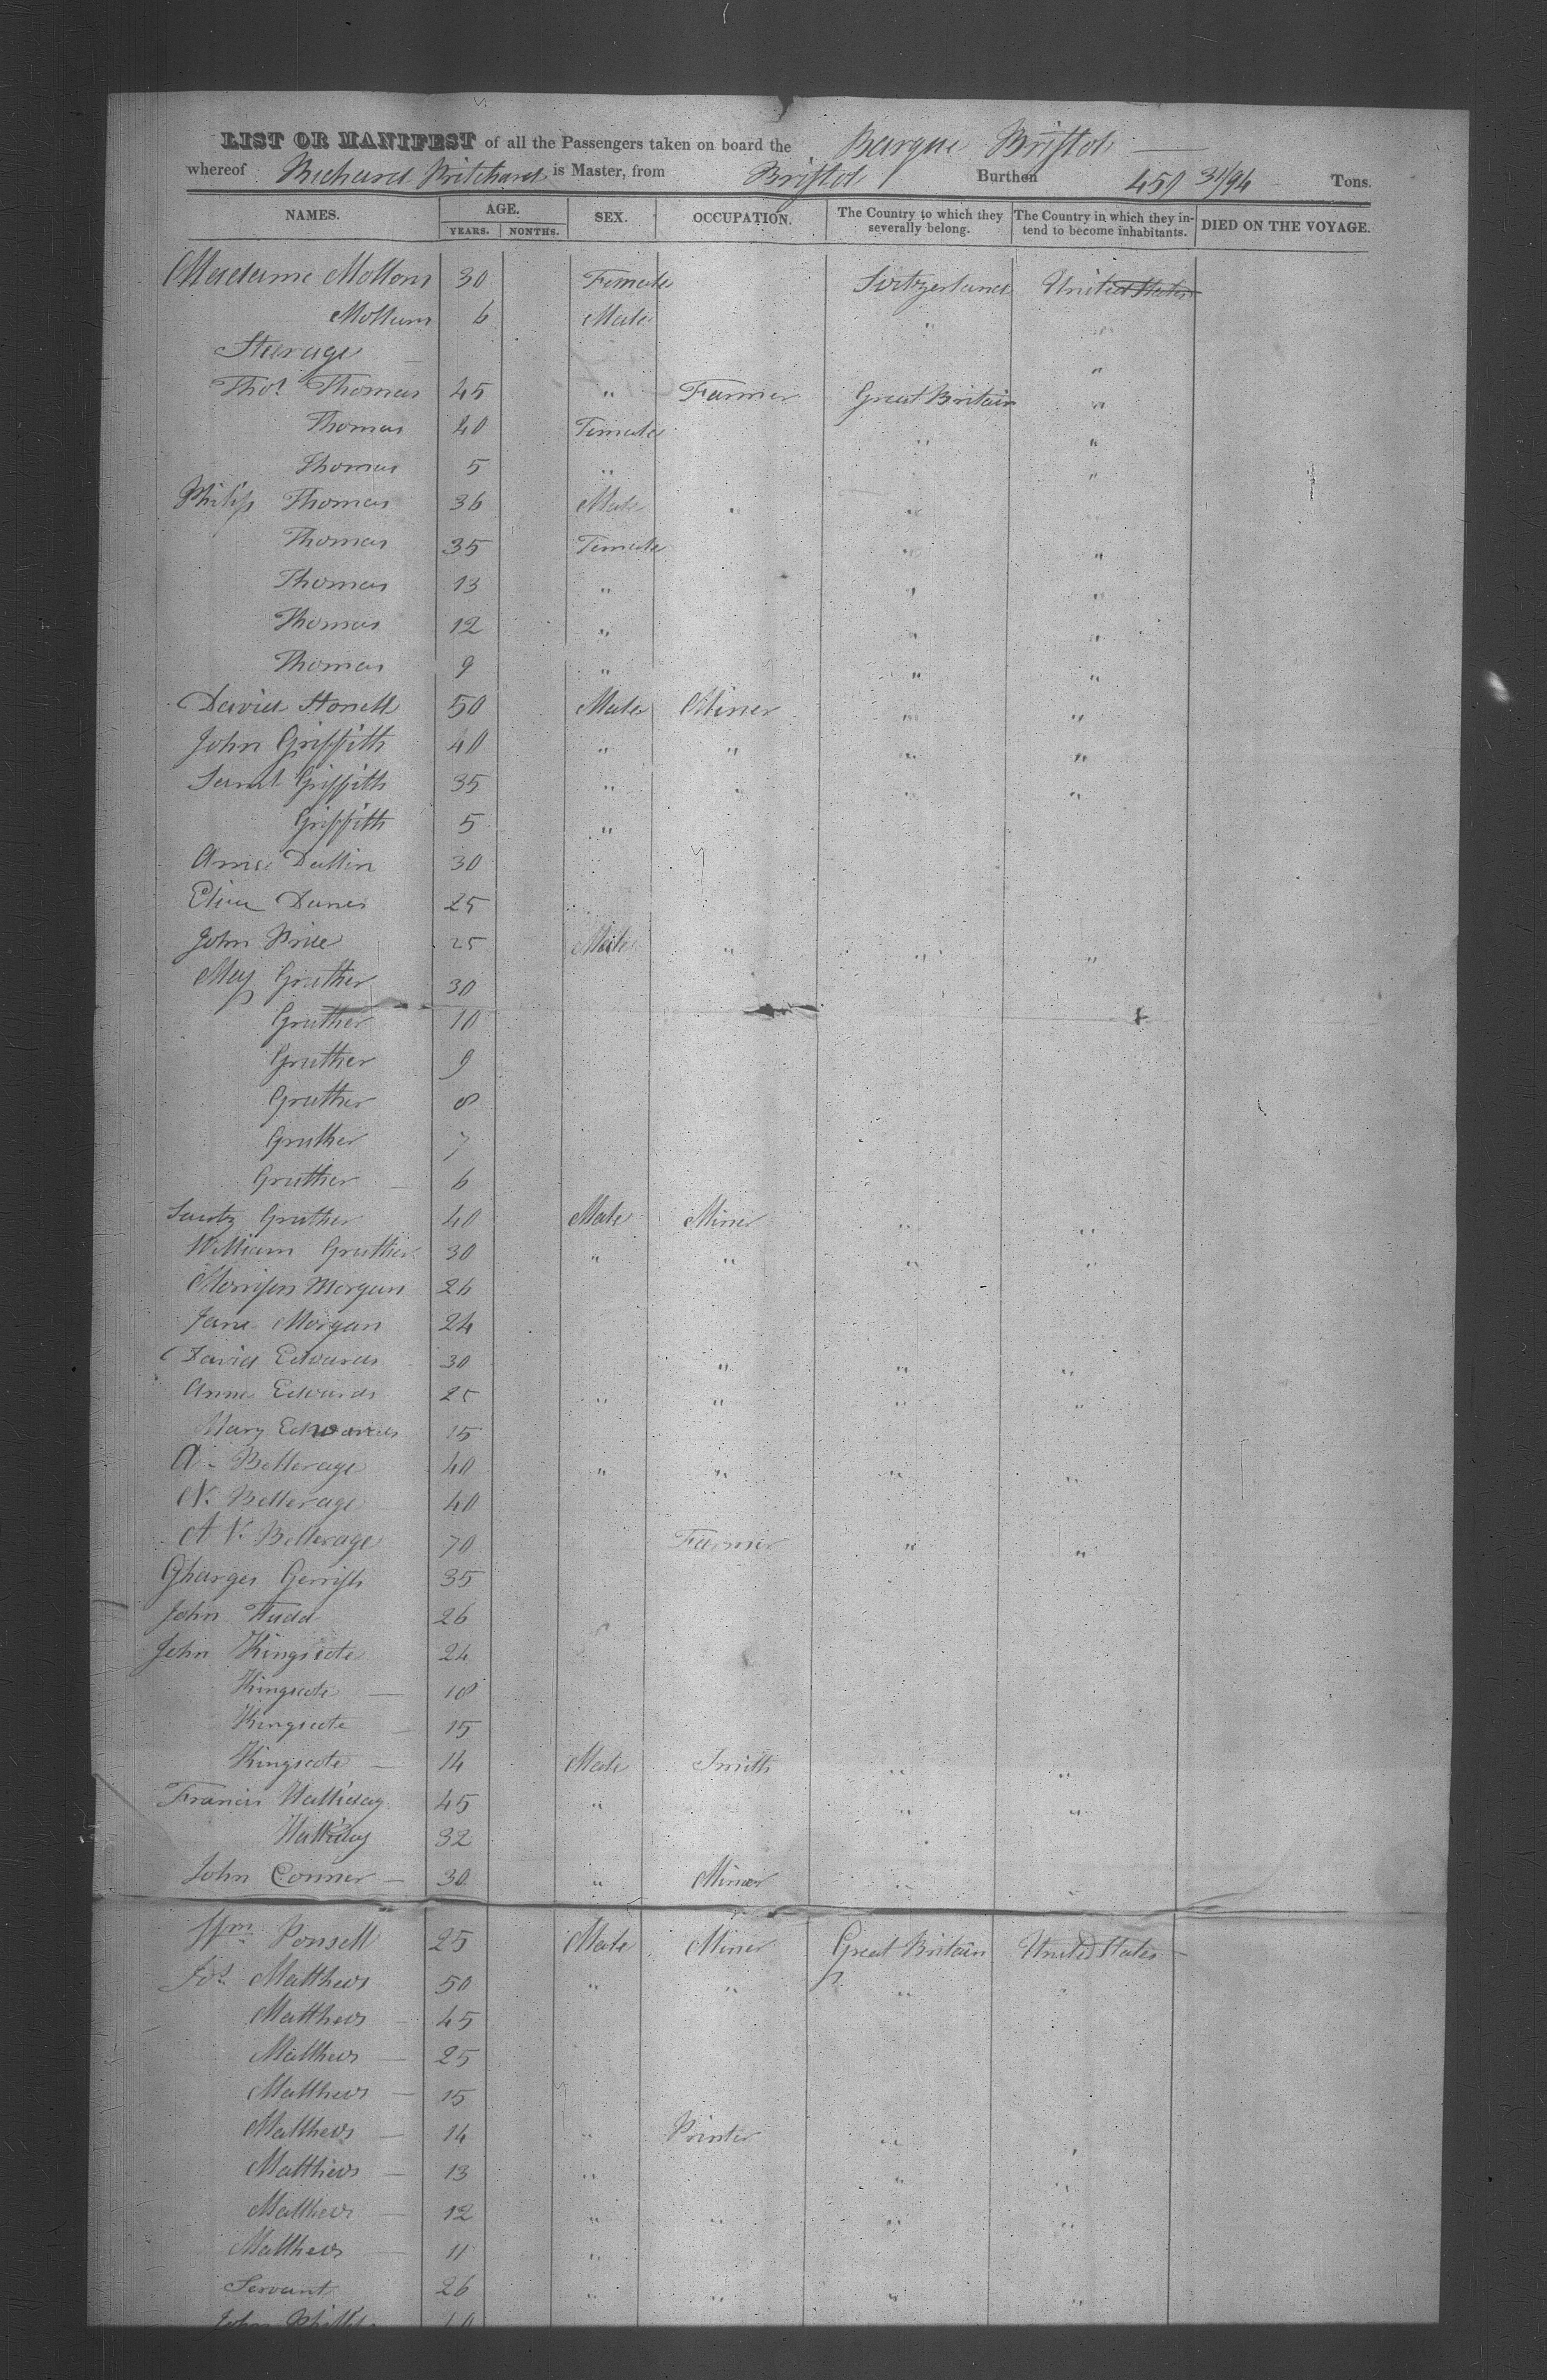 LIST OR MANIFEST of all the Passengers taken on board the Barque Bristol
whereof Richard Pritchard is Master, from Bristol Burthen 459 31/94 Tons.
NAMES. AGE. SEX. OCCUPATION. The Country to which they severally belong. The Country in which they intend to become inhabitants. DIED ON THE VOYAGE.
YEARS. MONTHS.
Madame 30 Female Switzerland United States
6 Male " "
Steerage "
Thos Thomas 45 " Farmer Great Britain "
Thomas 40 Female " "
Thomas 5 " "
Philip Thomas 36 Male " "
Thomas 35 Female " "
Thomas 13 " " "
Thomas 12 " " "
Thomas 9 " " "
David 50 Male Miner " "
John Griffith 40 " " " "
Saml Griffith 35 " " " "
Griffith 5 "
30
25
John Price 25 Male " " "
Gruther 30
Gruther 10
Gruther 9
Gruther 8
Gruther 7
Gruther 6
Gruther 40 Male Miner " "
William Gruther 30 " " " "
Morgan 26
Jane Morgan 24
David Edwards 30 " " "
Anne Edwards 25 " " " "
Mary Edwards 15
A. Betterage 40 " " " "
N. Betterage 40
A N. Betterage 70 Farmer " "
Gerrish 35
John 26
John Kingscote 24
Kingscote 18
Kingscote 15
Kingscote 14 Male Smith " "
Francis Halliday 45 " " "
Halliday 32
John Conner 30 " Miner " "
Wm Ponsell 25 Male Miner Great Britain United States
Jos Matthews 50 " " " "
Matthews 45
Matthews 25
Matthews 15
Matthews 14 " Printer " "
Matthews 13 " " "
Matthews 12 " " " "
Matthews 11 "
Servant 26 " " " "
John